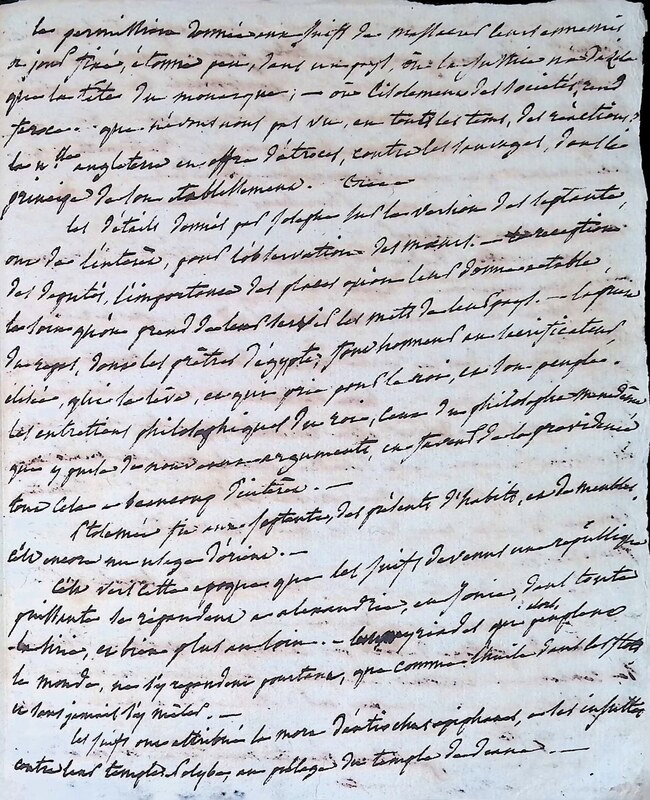 la permission donnée aux juifs de massacrer leurs ennemis
à jour fixé, étonne peu, dans un pays, où la justice n'a d'asile
que la tête du monarque ; — où l'isolement des sociétés, rend
féroce. que n'avons nous pas vu, en tous les tems, des réactions,
la nlle angleterre en offre d'atroces, contre les sauvages, dans le
principe de son établissement.
les détails donnés par Josephe sur la version des septante,
ont de l'intérêt, pour l'observation des mœurs. — la réception
des députés, l'importance des places qu'on leur donne à table,
le soin qu'on prend de leur servir les mets de leur pays. — la prière
du repas, dont les prêtres d'égypte, font honneur au sacrificateur
elisée, qui se lève, et qui prie pour le roi, et son peuple.
les entretiens philosophiques du roi, ceux du philosophe menedème
qui y parle de nouveaux arguments, en faveur de la providence
tout cela a beaucoup d'intérêt. —
Ptolemée fit aux septante, des présents d'habits, et de meubles.
c'est encore un usage d'orient. —
C'est vers cette époque que les juifs devenus une république
puissante se répandent à alexandrie, en Ionie, dans toute
la Sirie, et bien plus au loin. — les myriades dont, qui peuplent
le monde, ne s'y répandent pourtant, que comme l'huile dans les flots
et sans jamais s'y mêler. —
les juifs ont attribué la mort d'antiochus epiphanes, à ses insultes
contre leur temple. Polybe, au pillage du temple de diane. —